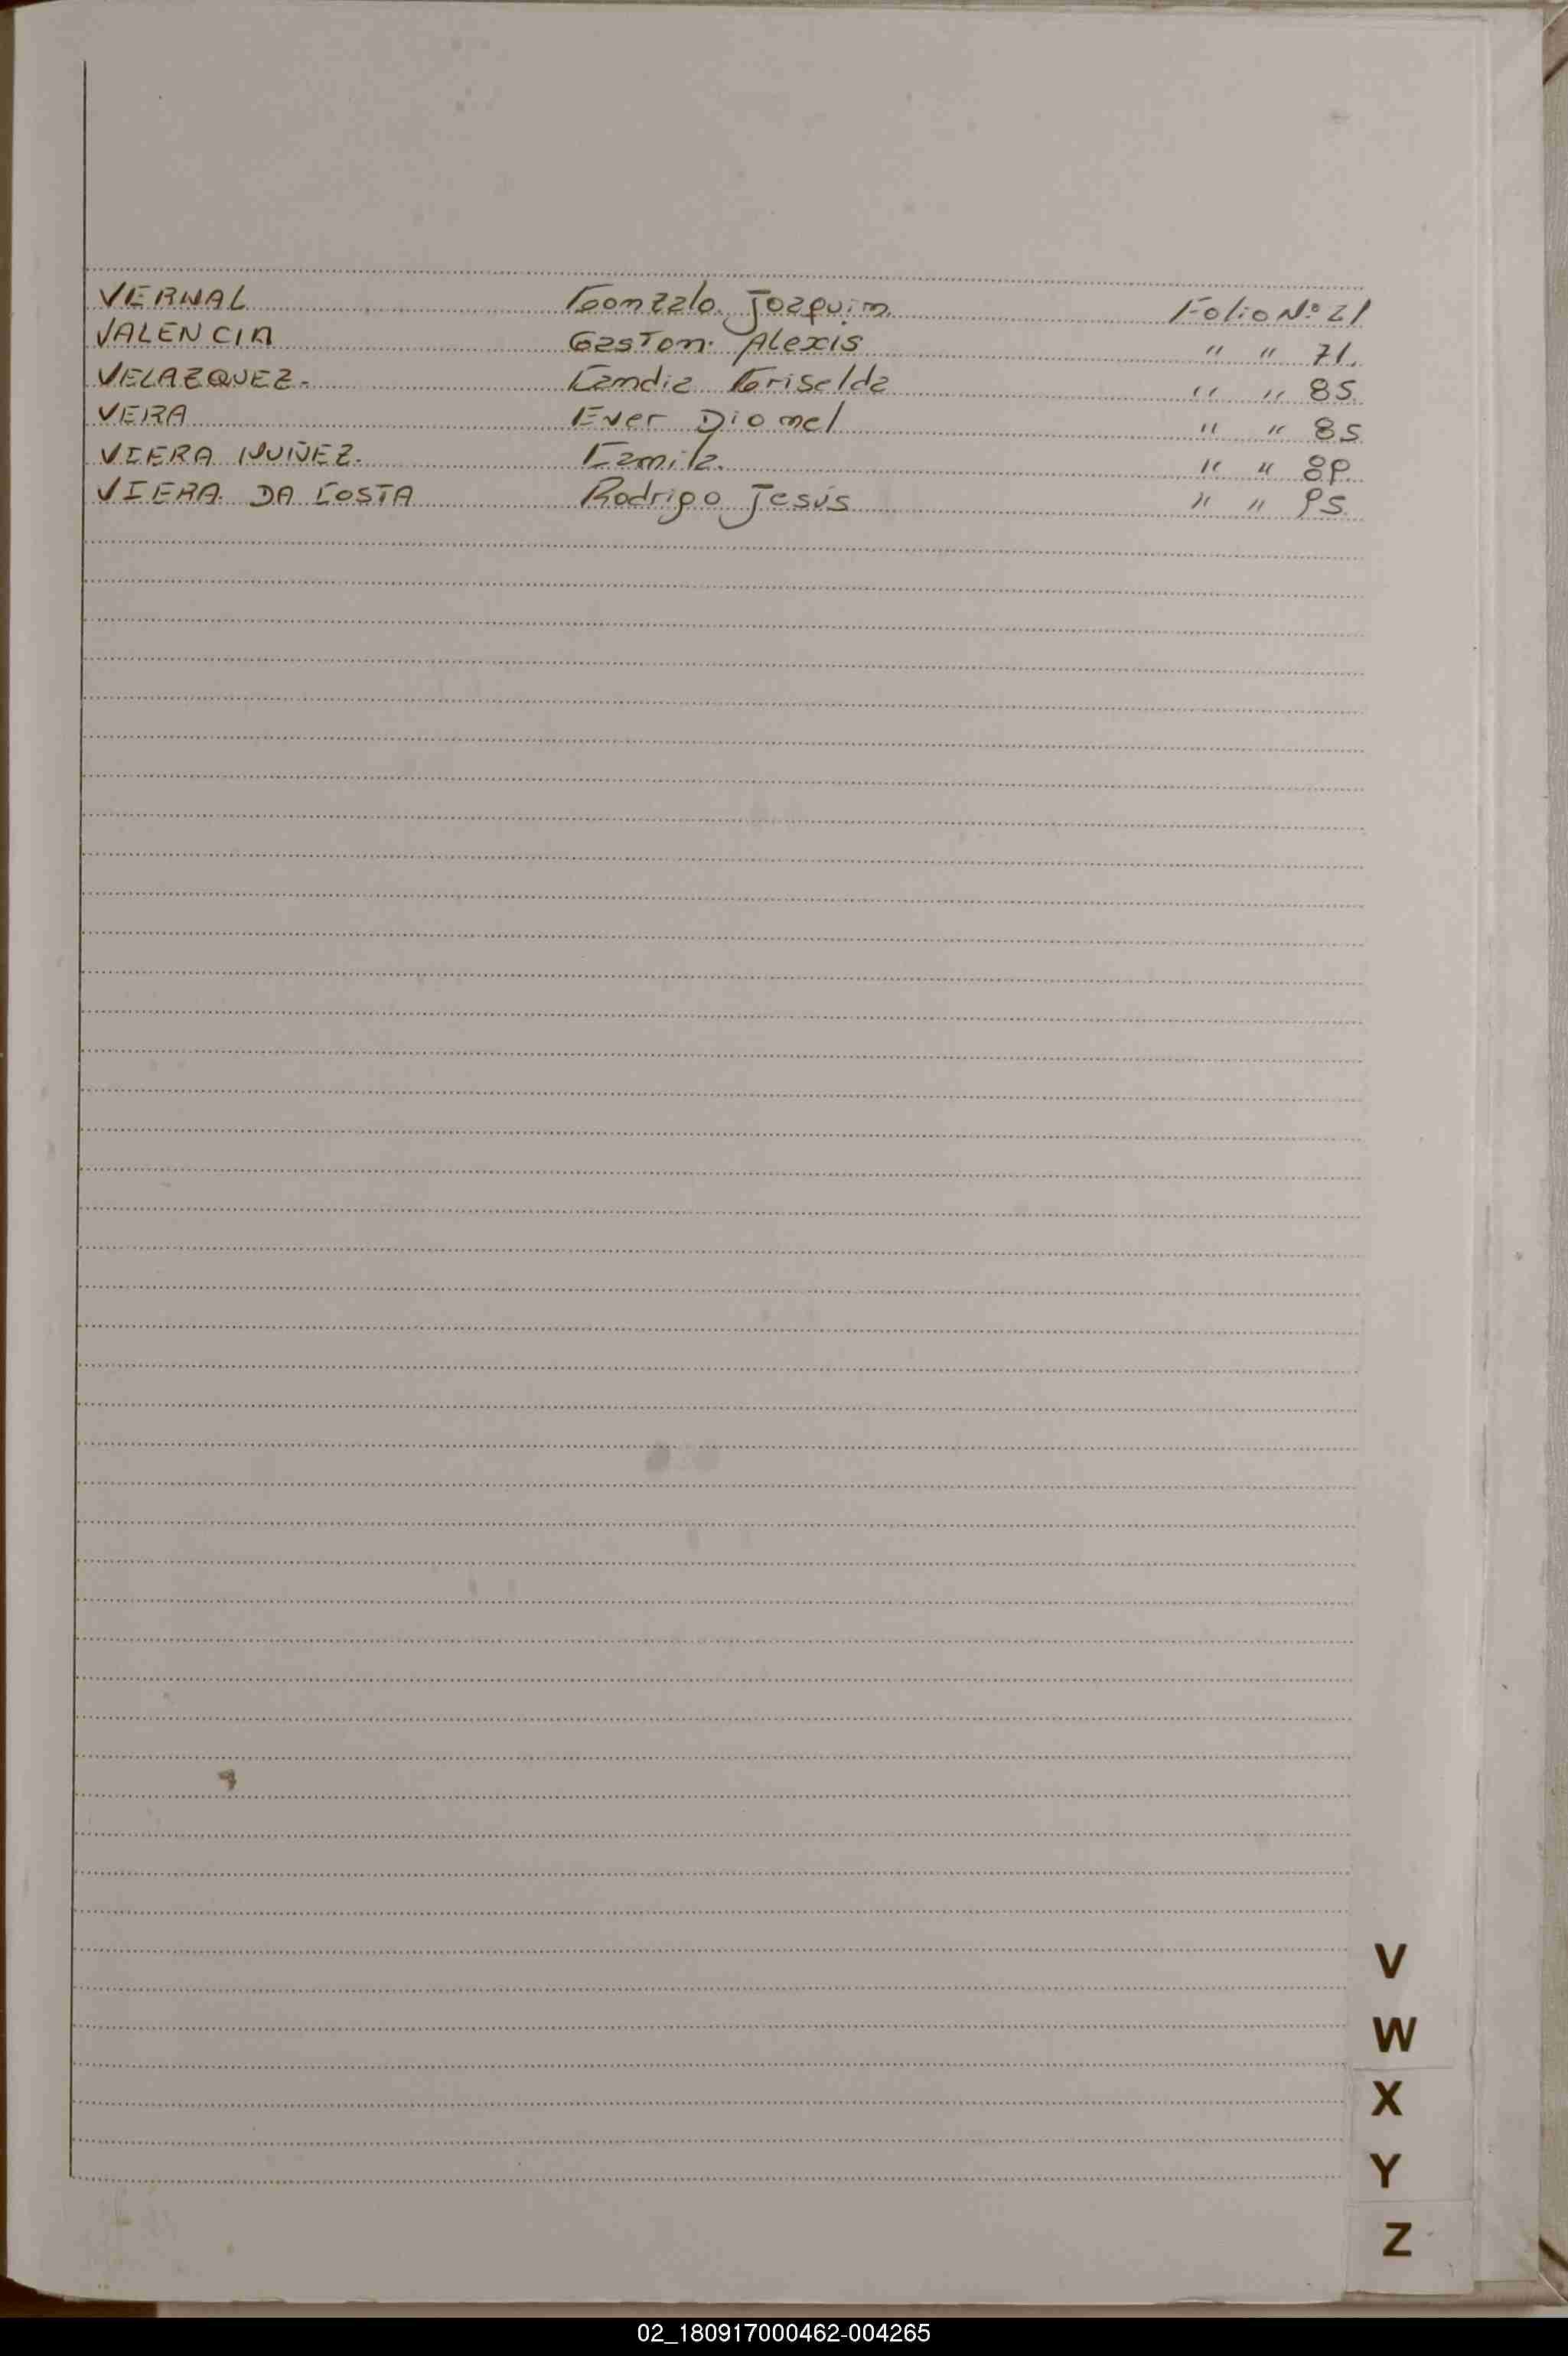 VERNAL Gonzalo Joaquim Folio Nº 21
VALENCIA Gaston. Alexis " " 71.
VELAZQUEZ. Candia Griselda " " 85.
VERA Ever Diomel " " 85
VIERA NUÑEZ. Camila. " " 89.
VIERA DA COSTA Rodrigo Jesús " " 95.
V
W
X
Y
Z
02_180917000462-004265